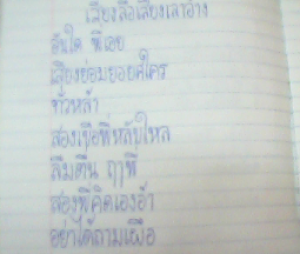 เสียงลือเสียงเล่าอ้าง
อันใด พี่เอย
เสียงย่อมยอยศใคร
ทั่วหล้า
สองเขือพี่หลับใหล
ลืมตื่น ฤๅพี่
สองพี่คิดเองอ้า
อย่าได้ถามเผือ